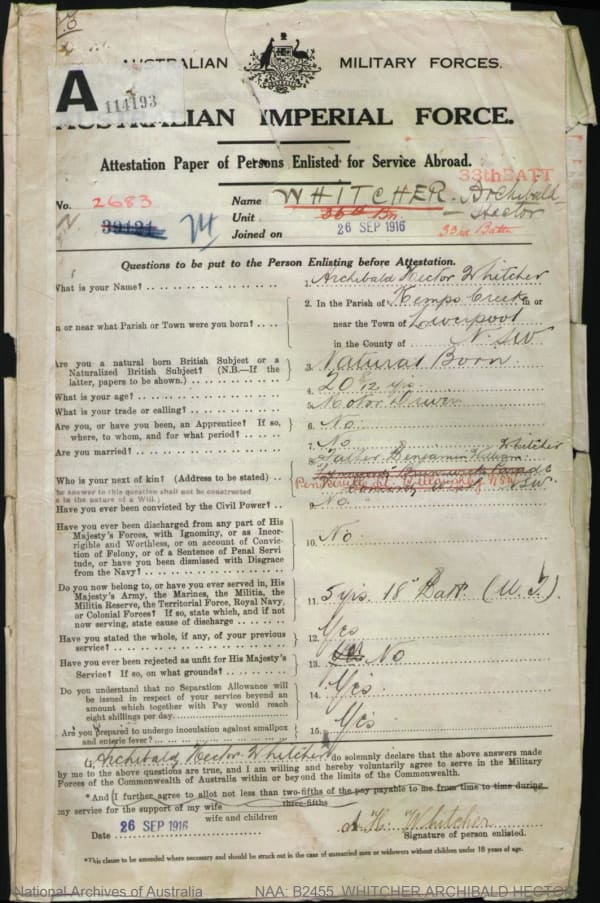 AUSTRALIAN MILITARY FORCES.
A
114193
AUSTRALIAN IMPERIAL FORCE.
Attestation Paper of Persons Enlisted for Service Abroad.
33th BATT
No. 2683 Name WHITCHER. Archibald Hector
39124 74 Unit 36th Bn 33rd Battn
Joined on 26 SEP 1916
Questions to be put to the Person Enlisting before Attestation.
What is your Name? 1. Archibald Hector Whitcher
2. In the Parish of Kemps Creek in or
In or near what Parish or Town were you born? near the Town of Liverpool
in the County of N.SW
Are you a natural born British Subject or a
Naturalized British Subject? (N.B.—If the
latter, papers to be shown.) 3. Natural Born
What is your age? 4. 20 /12 yrs
What is your trade or calling? 5. Motor Driver
Are you, or have you been, an Apprentice? If so,
where, to whom, and for what period? 6. No
Are you married? 7. No
Who is your next of kin? (Address to be stated) Father Benjamin William Whitcher
Penkivil St. Willoughby NSW
The answer to this question shall not be constructed
as in the nature of a Will.)
Have you ever been convicted by the Civil Power? No
Have you ever been discharged from any part of His
Majesty's Forces, with Ignominy, or as Incor-
rigible and Worthless, or on account of Convic-
tion of Felony, or of a Sentence of Penal Servi-
tude, or have you been dismissed with Disgrace
from the Navy? 10. No
Do you now belong to, or have you ever served in, His
Majesty's Army, the Marines, the Militia, the
Militia Reserve, the Territorial Force, Royal Navy,
or Colonial Forces? If so, state which, and if not
now serving, state cause of discharge 11. 5 yrs. 18th Batt.
Have you stated the whole, if any, of your previous
service? 12. Yes
Have you ever been rejected as unfit for His Majesty's
Service? If so, on what grounds? 13. No
Do you understand that no Separation Allowance will
be issued in respect of your service beyond an
amount which together with Pay would reach
eight shillings per day. 14. Yes
Are you prepared to undergo inoculation against smallpox
and enteric fever? 15. Yes
I, Archibald Hector Whitcher do solemnly declare that the above answers made
by me to the above questions are true, and I am willing and hereby voluntarily agree to serve in the Military
Forces of the Commonwealth of Australia within or beyond the limits of the Commonwealth.
*And I further agree to allot not less than two-fifths of the pay payable to me from time to time during
three-fifths
my service for the support of my wife
wife and children
Date 26 SEP 1916 A. H. Whitcher
Signature of person enlisted.
*This clause to be amended where necessary and should be struck out in the case of unmarried men or widowers without children under 18 years of age.
National Archives of Australia NAA: B2455, WHITCHER ARCHIBALD HECTOR